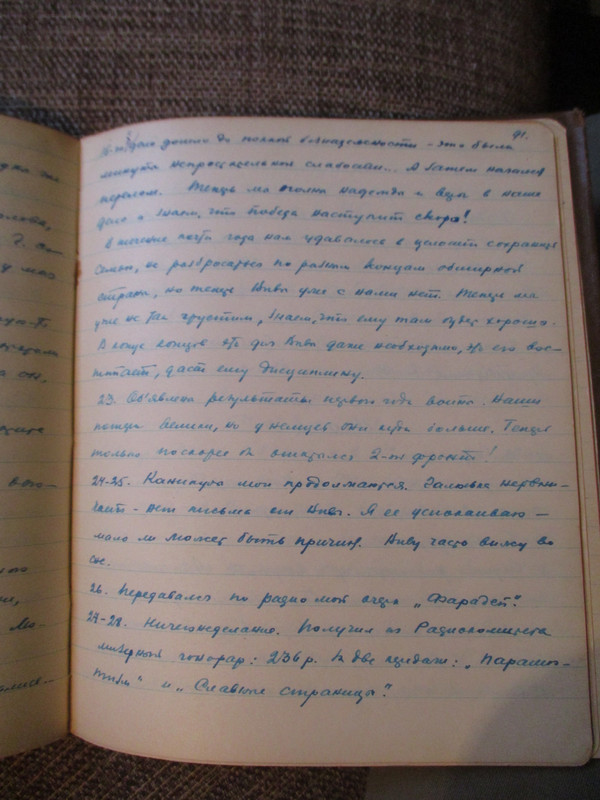 91.
дело дошло до полной безнадежности - это была
минута непростительной слабости... А затем начался
перелом. Теперь мы полны надежды и веры в наше
дело и знаем, что победа наступит скоро!
В течение почти года нам удавалось в целости сохранить
семью, не разбросаться по разным концам обширной
страны, но теперь Вивы уже с нами нет. Теперь мы
уже не так грустим, знаем, что ему там будет хорошо.
В конце концов это для Вивы даже необходимо, это его вос-
питает, даст ему дисциплину.
23. Об'явлены результаты первого года войны. Наши
потери велики, но у немцев они куда больше. Теперь
только поскорее бы открылся 2-ой фронт!
24-25. Каникулы мои продолжаются. нервни-
чает - нет письма от Вивы. Я ее успокаиваю -
мало ли может быть причин. Виву часто вижу во
сне.
26. Передавался по радио мой очерк „Фарадей".
27-28. Ничегонеделание. Получил из Радиокомитета
мизерный гонорар: 236 р. за две передачи:
и „Славные страницы".
дка
лова,
у мы
он.
ного